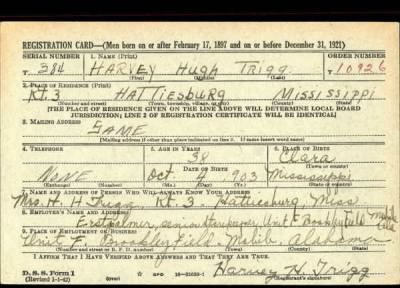 REGISTRATION CARD—(Men born on or after February 17, 1897 and on or before December 31, 1921)
SERIAL NUMBER 1. NAME (Print) ORDER NUMBER
T 384 HARVEY Hugh Trigg T 10926
(First) (Middle) (Last)
2. PLACE OF RESIDENCE (Print)
Rt. 3 HATTIESBURG MISSISSIPPI
(Number and street) (Town, township, village, or city) (County) (State)
[THE PLACE OF RESIDENCE GIVEN ON THE LINE ABOVE WILL DETERMINE LOCAL BOARD
JURISDICTION; LINE 2 OF REGISTRATION CERTIFICATE WILL BE IDENTICAL]
3. MAILING ADDRESS
SAME
[Mailing address if other than place indicated on line 2. If same insert word same]
4. TELEPHONE 5. AGE IN YEARS 6. PLACE OF BIRTH
38 Clara
DATE OF BIRTH (Town or county)
NONE Oct. 4 903 Mississippi
(Exchange) (Number) (Mo.) (Day) (Yr.) (State or country)
7. NAME AND ADDRESS OF PERSON WHO WILL ALWAYS KNOW YOUR ADDRESS
Mrs. H. H. Trigg Rt. 3 Hattiesburg, Miss
8. EMPLOYER'S NAME AND ADDRESS
Unit F Brookley Field
9. PLACE OF EMPLOYMENT OR BUSINESS
Unit F. Brookley Field, Mobile, Alabama
(Number and street or R. F. D. number) (Town) (County) (State)
I AFFIRM THAT I HAVE VERIFIED ABOVE ANSWERS AND THAT THEY ARE TRUE.
D. S. S. Form 1 GPO
(Revised 1-1-42) (over) Harvey H. Trigg